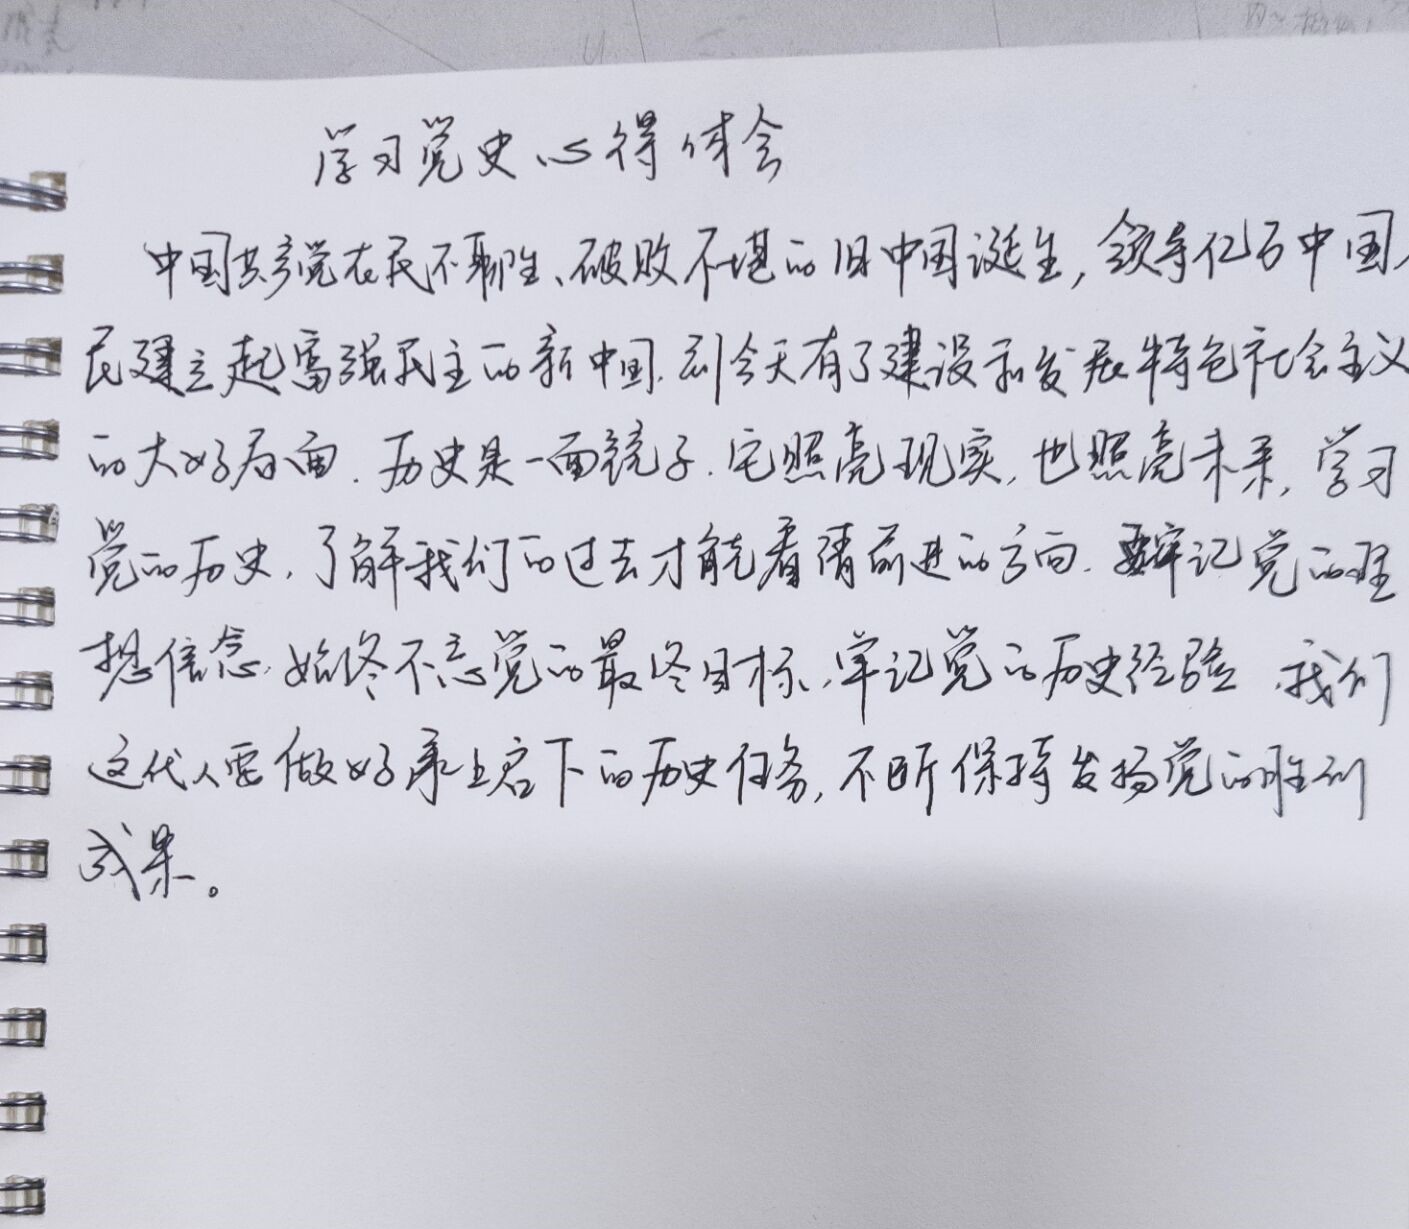 学习党史心得体会
中国共产党在民不聊生、破败不堪的旧中国诞生,领导亿万中国人
民建立起富强民主的新中国.到今天有了建设和发展特色社会主义
的大好局面.历史是一面镜子.它照亮现实,也照亮未来,学习
党的历史.了解我们的过去才能看清前进的方向.要牢记党的理
想信念.始终不忘党的最终目标.牢记党的历史经验.我们
这代人要做好承上启下的历史任务,不断保持发扬党的胜利
成果。